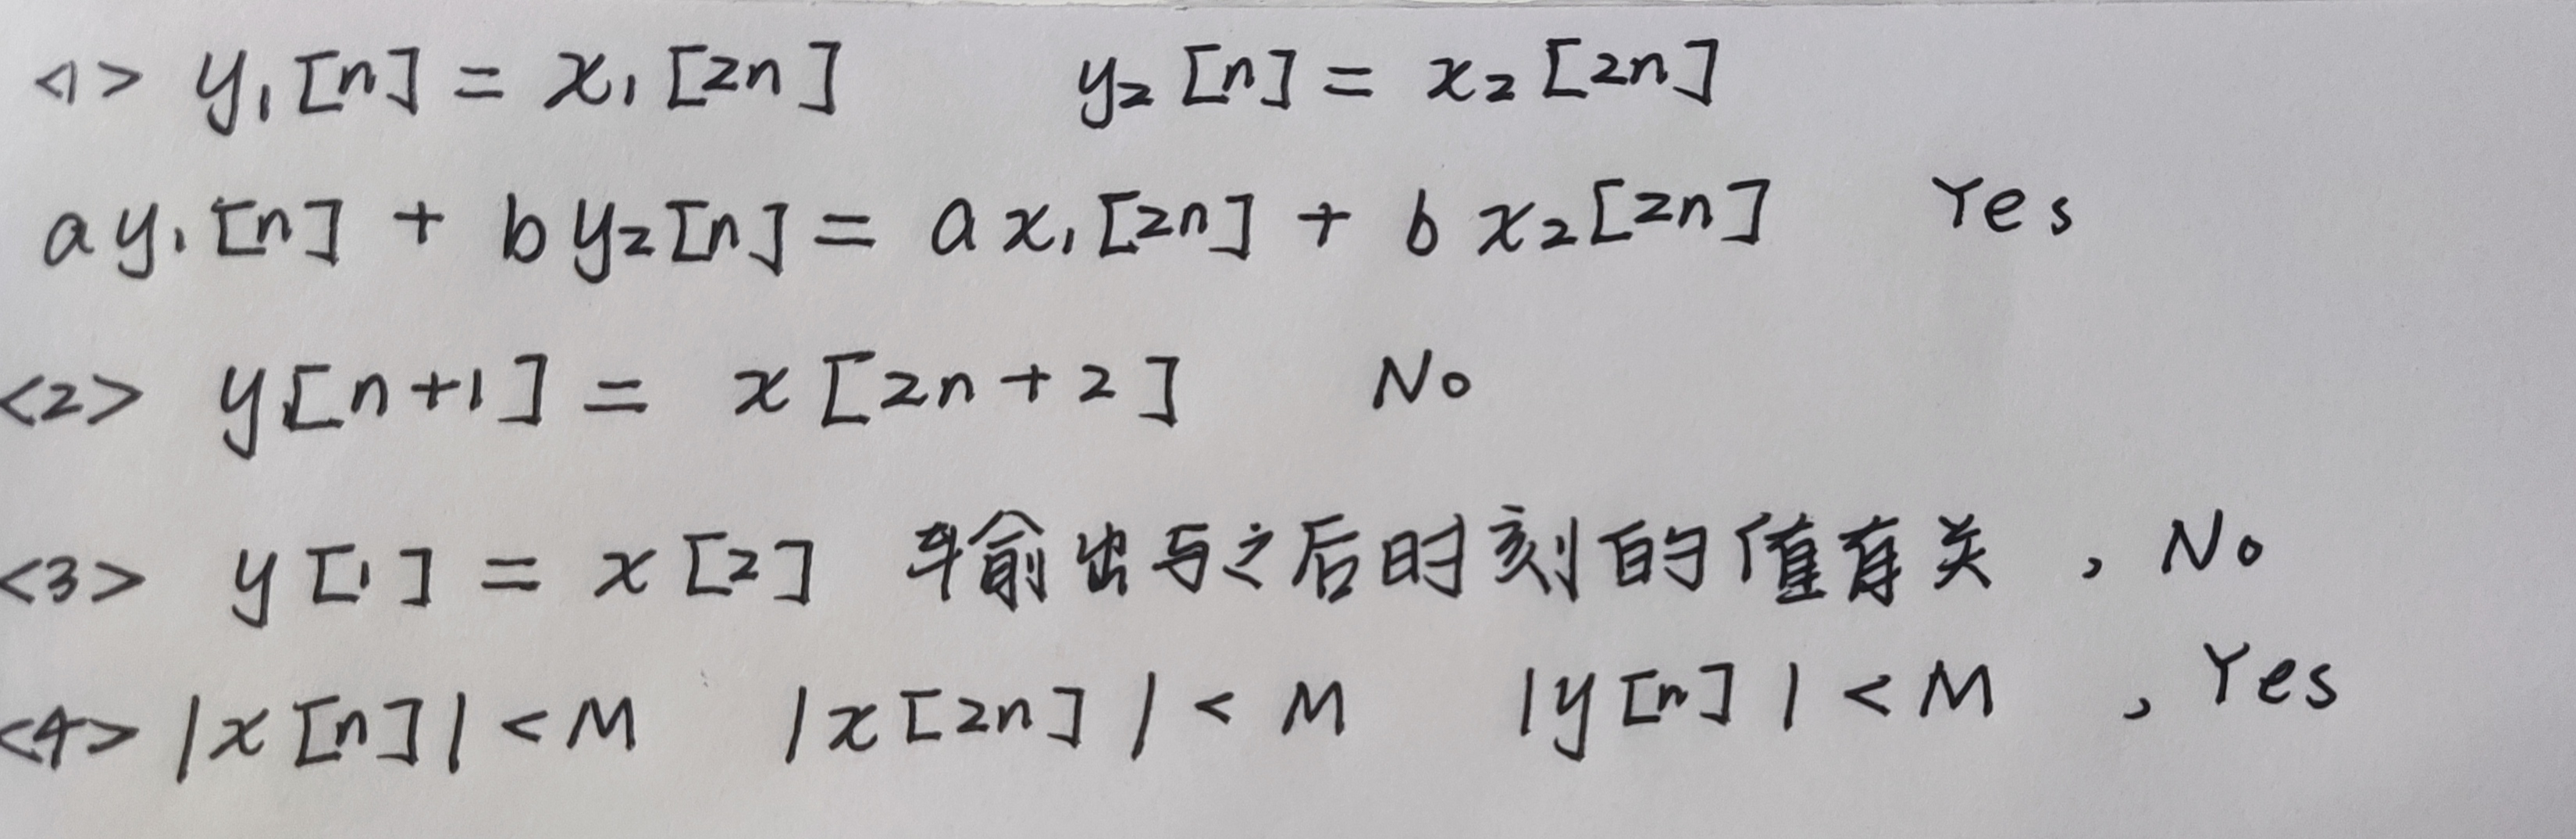 <1> y₁[n] = x₁[2n] y₂[n] = x₂[2n]
ay₁[n] + by₂[n] = ax₁[2n] + bx₂[2n] Yes
<2> y[n+1] = x[2n+2] No
<3> y[1] = x[2] 输出与之后时刻的值有关, No
<4> |x[n]| < M |x[2n]| < M |y[n]| < M , Yes